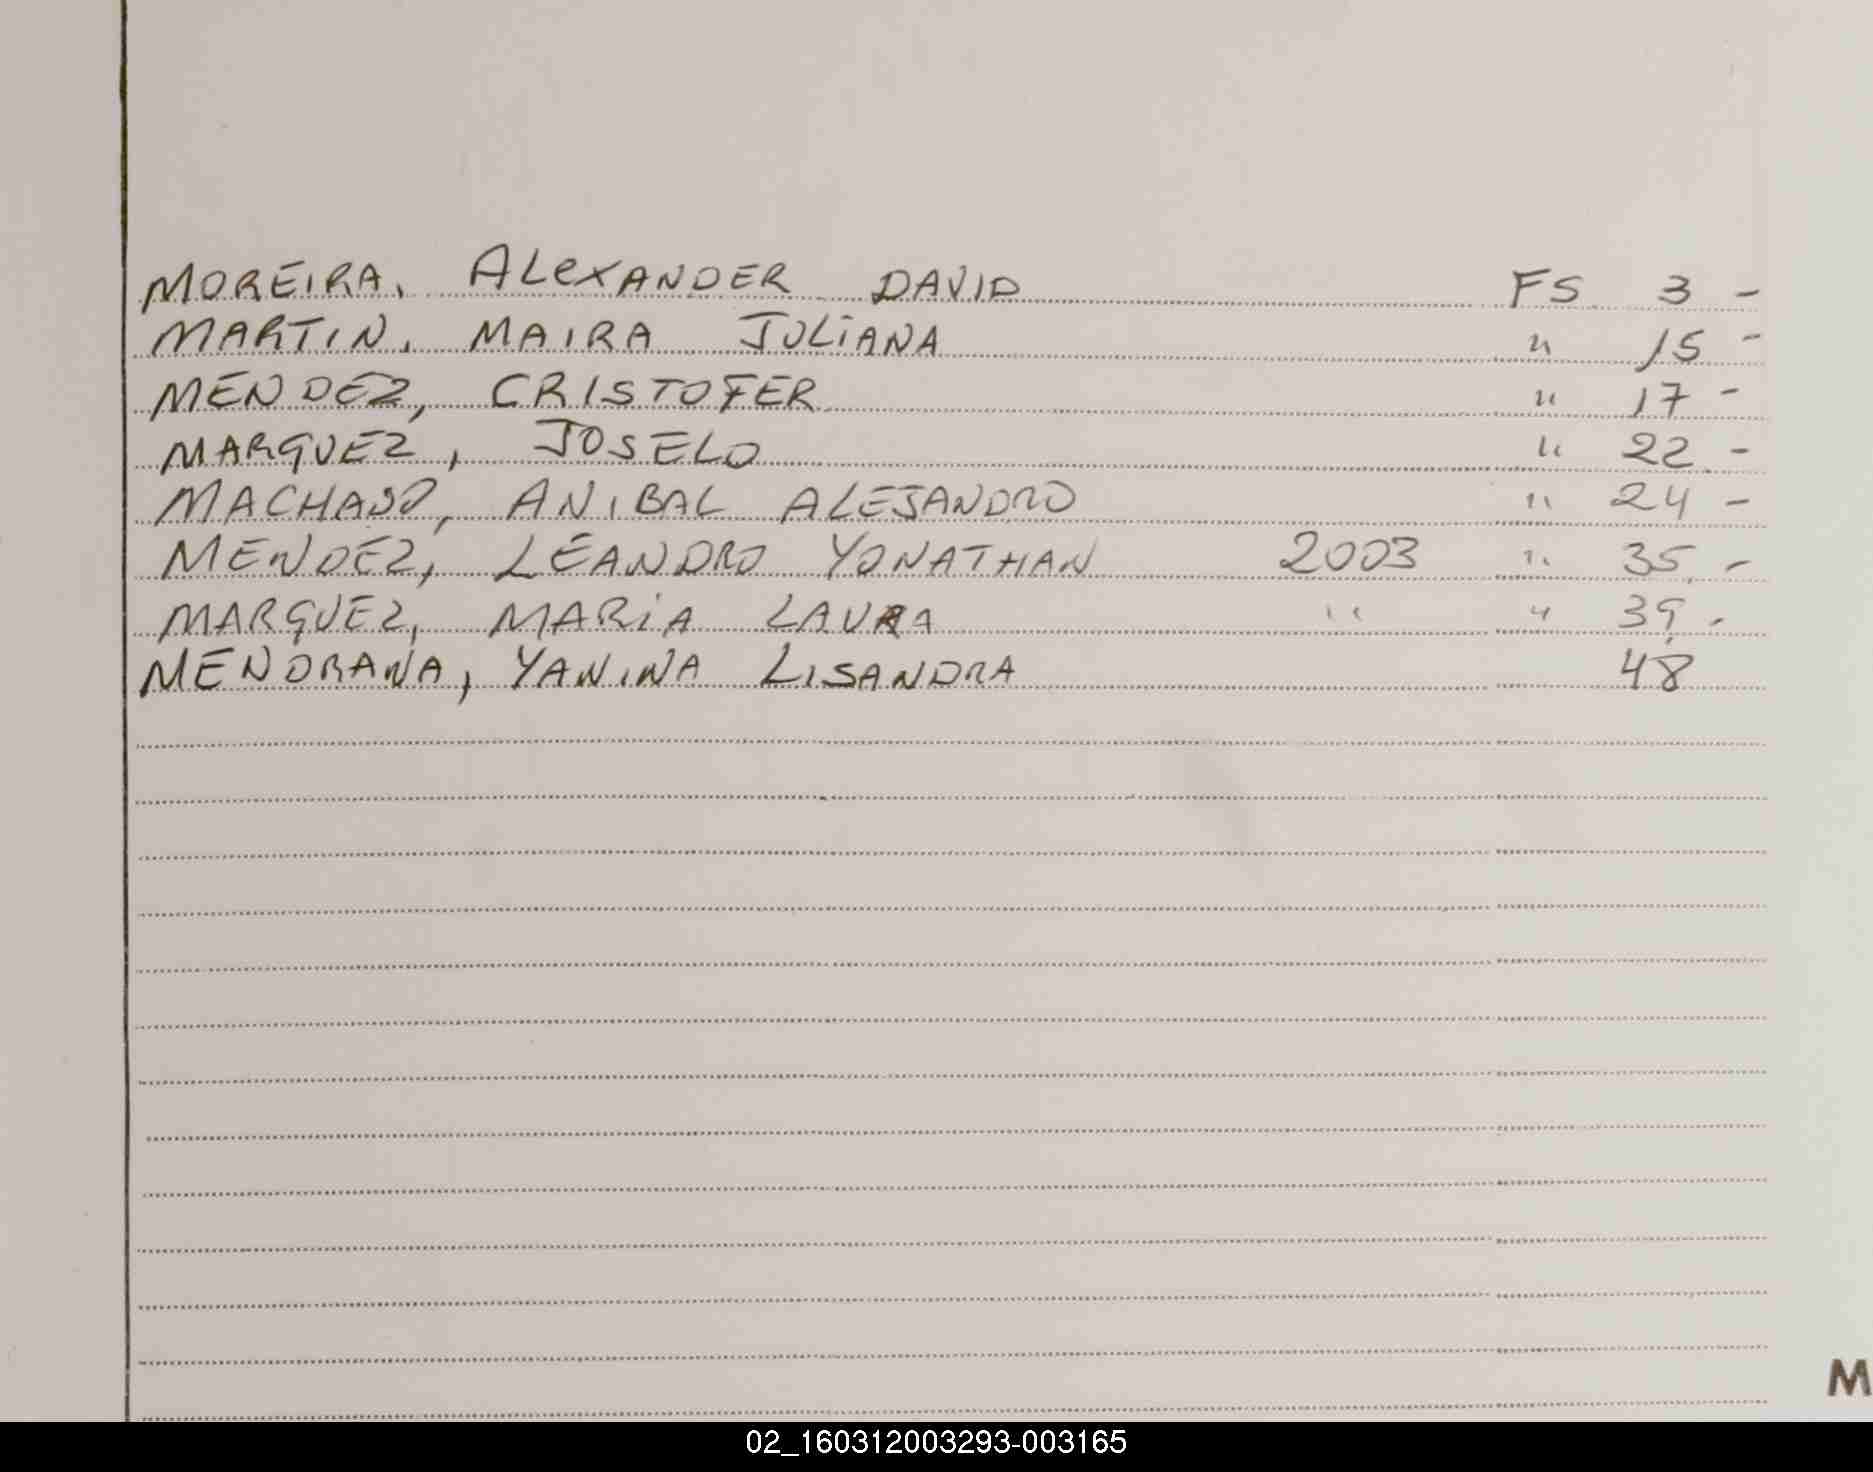 MOREIRA, ALEXANDER DAVID FS 3 -
MARTIN, MAIRA JULIANA " 15 -
MENDEZ, CRISTOFER " 17 -
MARQUEZ, JOSELO " 22 -
MACHADO, ANIBAL ALEJANDRO " 24 -
MENDEZ, LEANDRO YONATHAN 2003 " 35 -
MARQUEZ, MARIA LAURA " " 39 -
YANINA LISANDRA 48
M
02_160312003293-003165